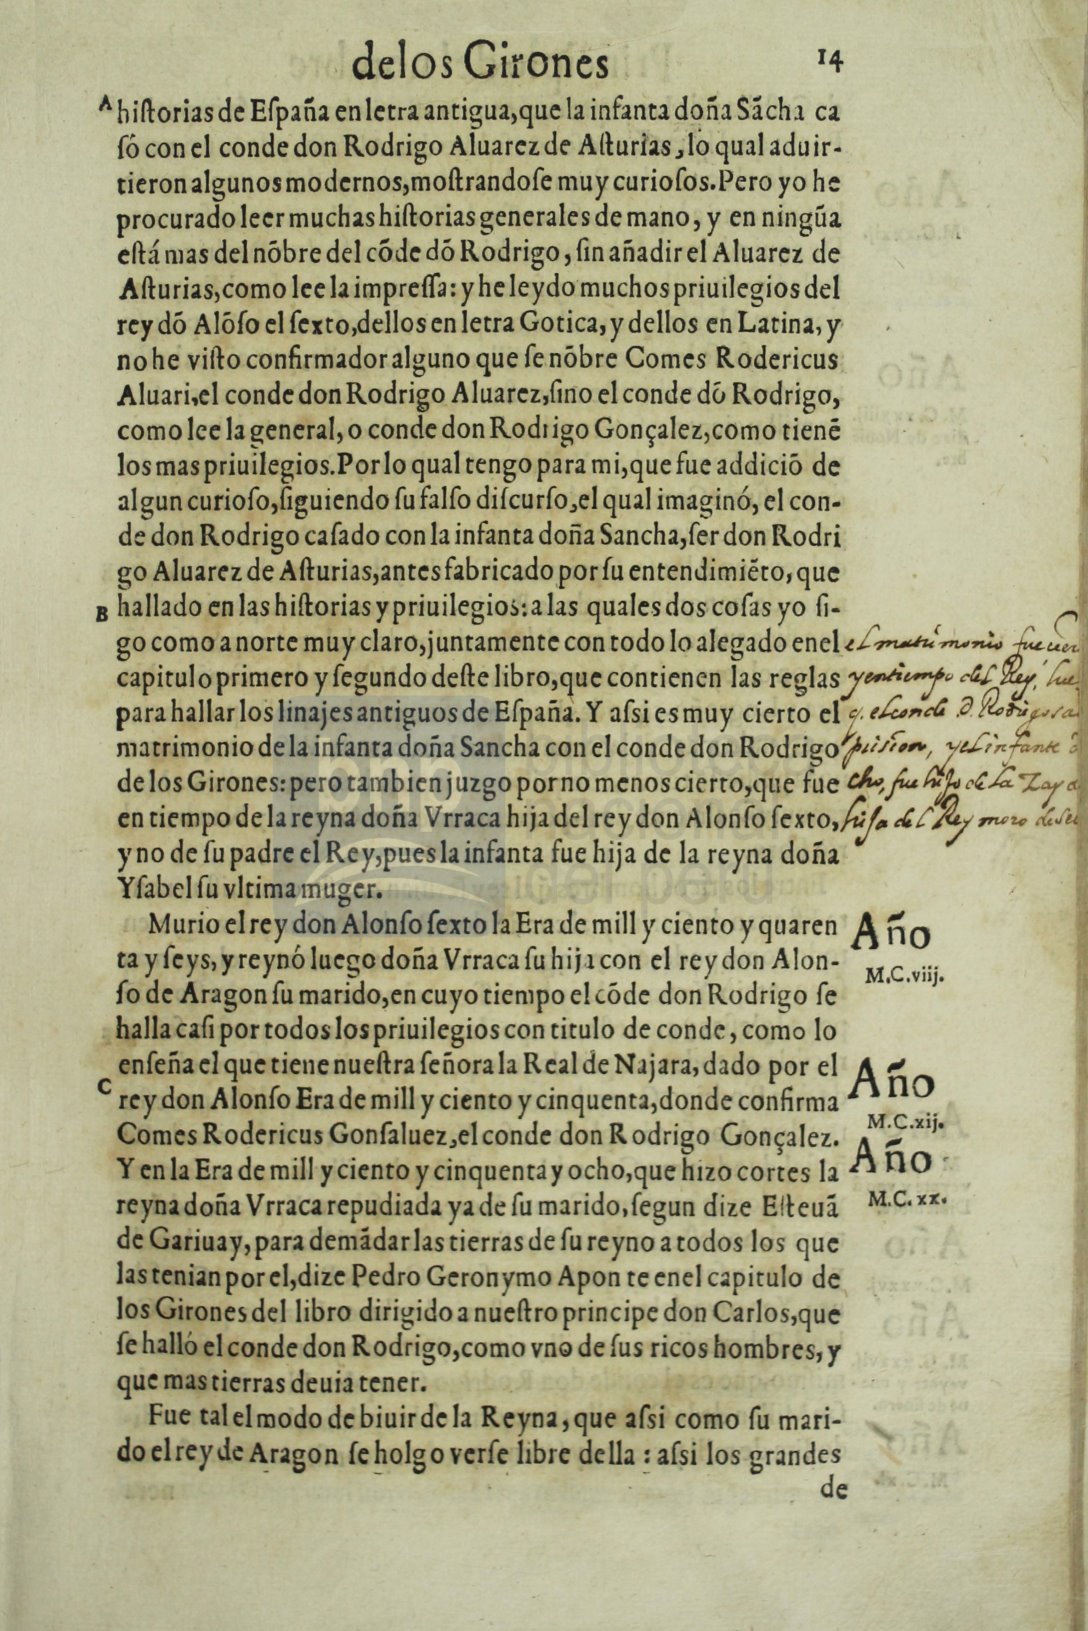 delos Girones
14
A
hiſtorias de Eſpaña en letra antigua, que la infanta doña Sãcha ca
ſó con el conde don Rodrigo Aluarez de Aſturias, lo qual aduir-
tieron algunos modernos, moſtrandoſe muy curioſos. Pero yo he
procurado leer muchas hiſtorias generales de mano, y en ningũa
eſtá mas del nõbre del cõde dõ Rodrigo, ſin añadir el Aluarez de
Aſturias, como lee la impreſſa: y he leydo muchos priuilegios del
rey dõ Alõſo el ſexto, dellos en letra Gotica, y dellos en Latina, y
no he viſto confirmador alguno que ſe nõbre Comes Rodericus
Aluari, el conde don Rodrigo Aluarez, ſino el conde dõ Rodrigo,
como lee la general, o conde don Rodrigo Gonçalez, como tienẽ
los mas priuilegios. Por lo qual tengo para mi, que fue addiciõ de
algun curioſo, ſiguiendo ſu falſo diſcurſo, el qual imaginó, el con-
de don Rodrigo caſado con la infanta doña Sancha, ſer don Rodri
go Aluarez de Aſturias, antes fabricado por ſu entendimiẽto, que
B
hallado en las hiſtorias y priuilegios: a las quales dos coſas yo ſi-
go como a norte muy claro, juntamente con todo lo alegado en el
capitulo primero y ſegundo deſte libro, que contienen las reglas
para hallar los linajes antiguos de Eſpaña. Y aſsi es muy cierto el
matrimonio de la infanta doña Sancha con el conde don Rodrigo
de los Girones: pero tambien juzgo por no menos cierto, que fue
en tiempo de la reyna doña Vrraca hija del rey don Alonſo ſexto,
y no de ſu padre el Rey, pues la infanta fue hija de la reyna doña
Yſabel ſu vltima muger.
el matrimonio fue
y en tiempo del Rey,
q. el conde D. Rodrigo
prision, y el infante
cho, fue hijo de la Zayda
hija del Rey moro de
Murio el rey don Alonſo ſexto la Era de mill y ciento y quaren
ta y ſeys, y reynó luego doña Vrraca ſu hija con el rey don Alon-
ſo de Aragon ſu marido, en cuyo tiempo el cõde don Rodrigo ſe
halla caſi por todos los priuilegios con titulo de conde, como lo
enſeña el que tiene nueſtra ſeñora la Real de Najara, dado por el
C
rey don Alonſo Era de mill y ciento y cinquenta, donde confirma
Comes Rodericus Gonſaluez, el conde don Rodrigo Gonçalez.
Y en la Era de mill y ciento y cinquenta y ocho, que hizo cortes la
reyna doña Vrraca repudiada ya de ſu marido, ſegun dize Eſteuã
de Gariuay, para demãdar las tierras de ſu reyno a todos los que
las tenian por el, dize Pedro Geronymo Aponte en el capitulo de
los Girones del libro dirigido a nueſtro principe don Carlos, que
ſe halló el conde don Rodrigo, como vno de ſus ricos hombres, y
que mas tierras deuia tener.
Año
M.C.viij.
Año
M.C.xij.
Año
M.C.xx.
Fue tal el modo de biuir de la Reyna, que aſsi como ſu mari-
do el rey de Aragon ſe holgo verſe libre della: aſsi los grandes
de